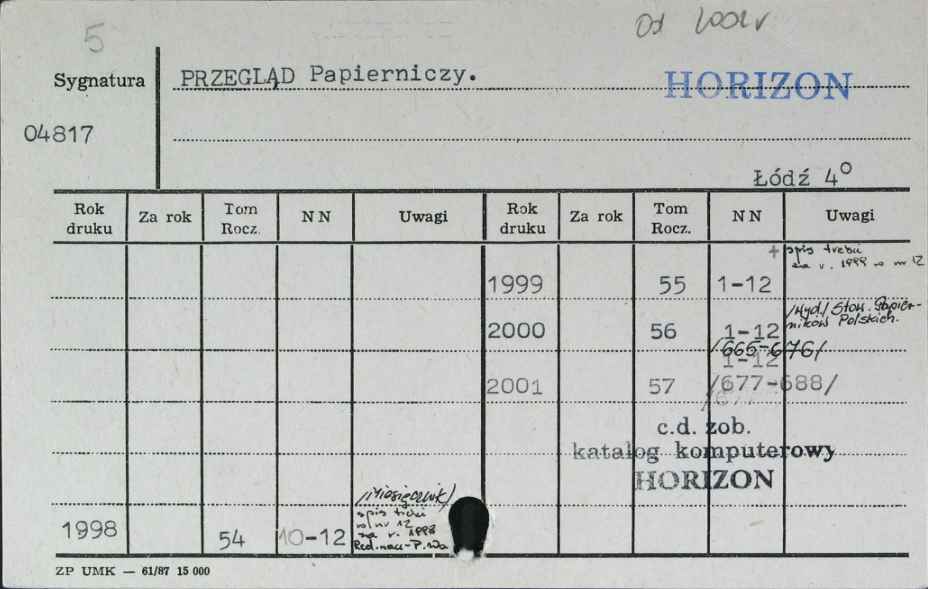 5
Od 2002 r
Sygnatura
PRZEGLĄD Papierniczy.
HORIZON
04817
Łódź 4°
Rok druku Za rok Tom Rocz. NN Uwagi Rok druku Za rok Tom Rocz. NN Uwagi
+ spis treści
za r. 1999 w nr 12
1999 55 1-12
/Wyd./ Stow. Papier-
ników Polskich.
2000 56 1-12
/665-676/
1-12
2001 57 /677-688/
/677
c.d. zob.
katalog komputerowy
HORIZON
/Miesięcznik/
spis treści
w nr 12
za r. 1998
Red. nacz-P.
1998 54 10-12
ZP UMK — 61/87 15 000